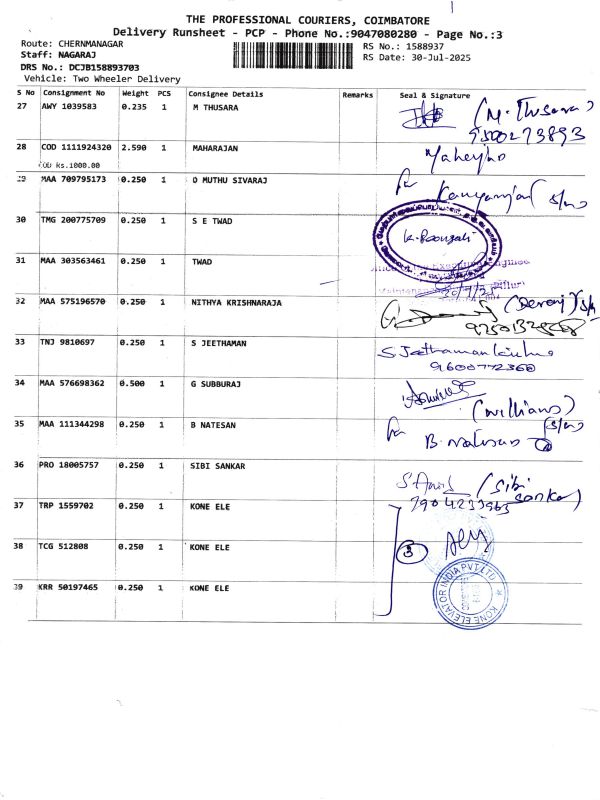 THE PROFESSIONAL COURIERS, COIMBATORE
Delivery Runsheet - PCP - Phone No.:9047080280 - Page No.:3
Route: CHERNMANAGAR
RS No.: 1588937
Staff: NAGARAJ
RS Date: 30-Jul-2025
DRS No.: DCJB158893703
Vehicle: Two Wheeler Delivery
S No Consignment No Weight PCS Consignee Details Remarks Seal & Signature
27 AWY 1039583 0.235 1 M THUSARA (M. Thusara)
9500273893
28 COD 1111924320 2.590 1 MAHARAJAN
COD Rs.1000.00
29 MAA 709795173 0.250 1 O MUTHU SIVARAJ for s/no
30 TMG 200775709 0.250 1 S E TWAD
31 MAA 303563461 0.250 1 TWAD
32 MAA 575196570 0.250 1 NITHYA KRISHNARAJA
33 TNJ 9810697 0.250 1 S JEETHAMAN S Jeethaman
9600772360
34 MAA 576698362 0.500 1 G SUBBURAJ (Williams)
35 MAA 111344298 0.250 1 B NATESAN for B. Natesan
36 PRO 18005757 0.250 1 SIBI SANKAR (Sibi Sankar)
37 TRP 1559702 0.250 1 KONE ELE
38 TCG 512808 0.250 1 KONE ELE 3
39 KRR 50197465 0.250 1 KONE ELE
KONE ELEVATOR INDIA PVT LTD